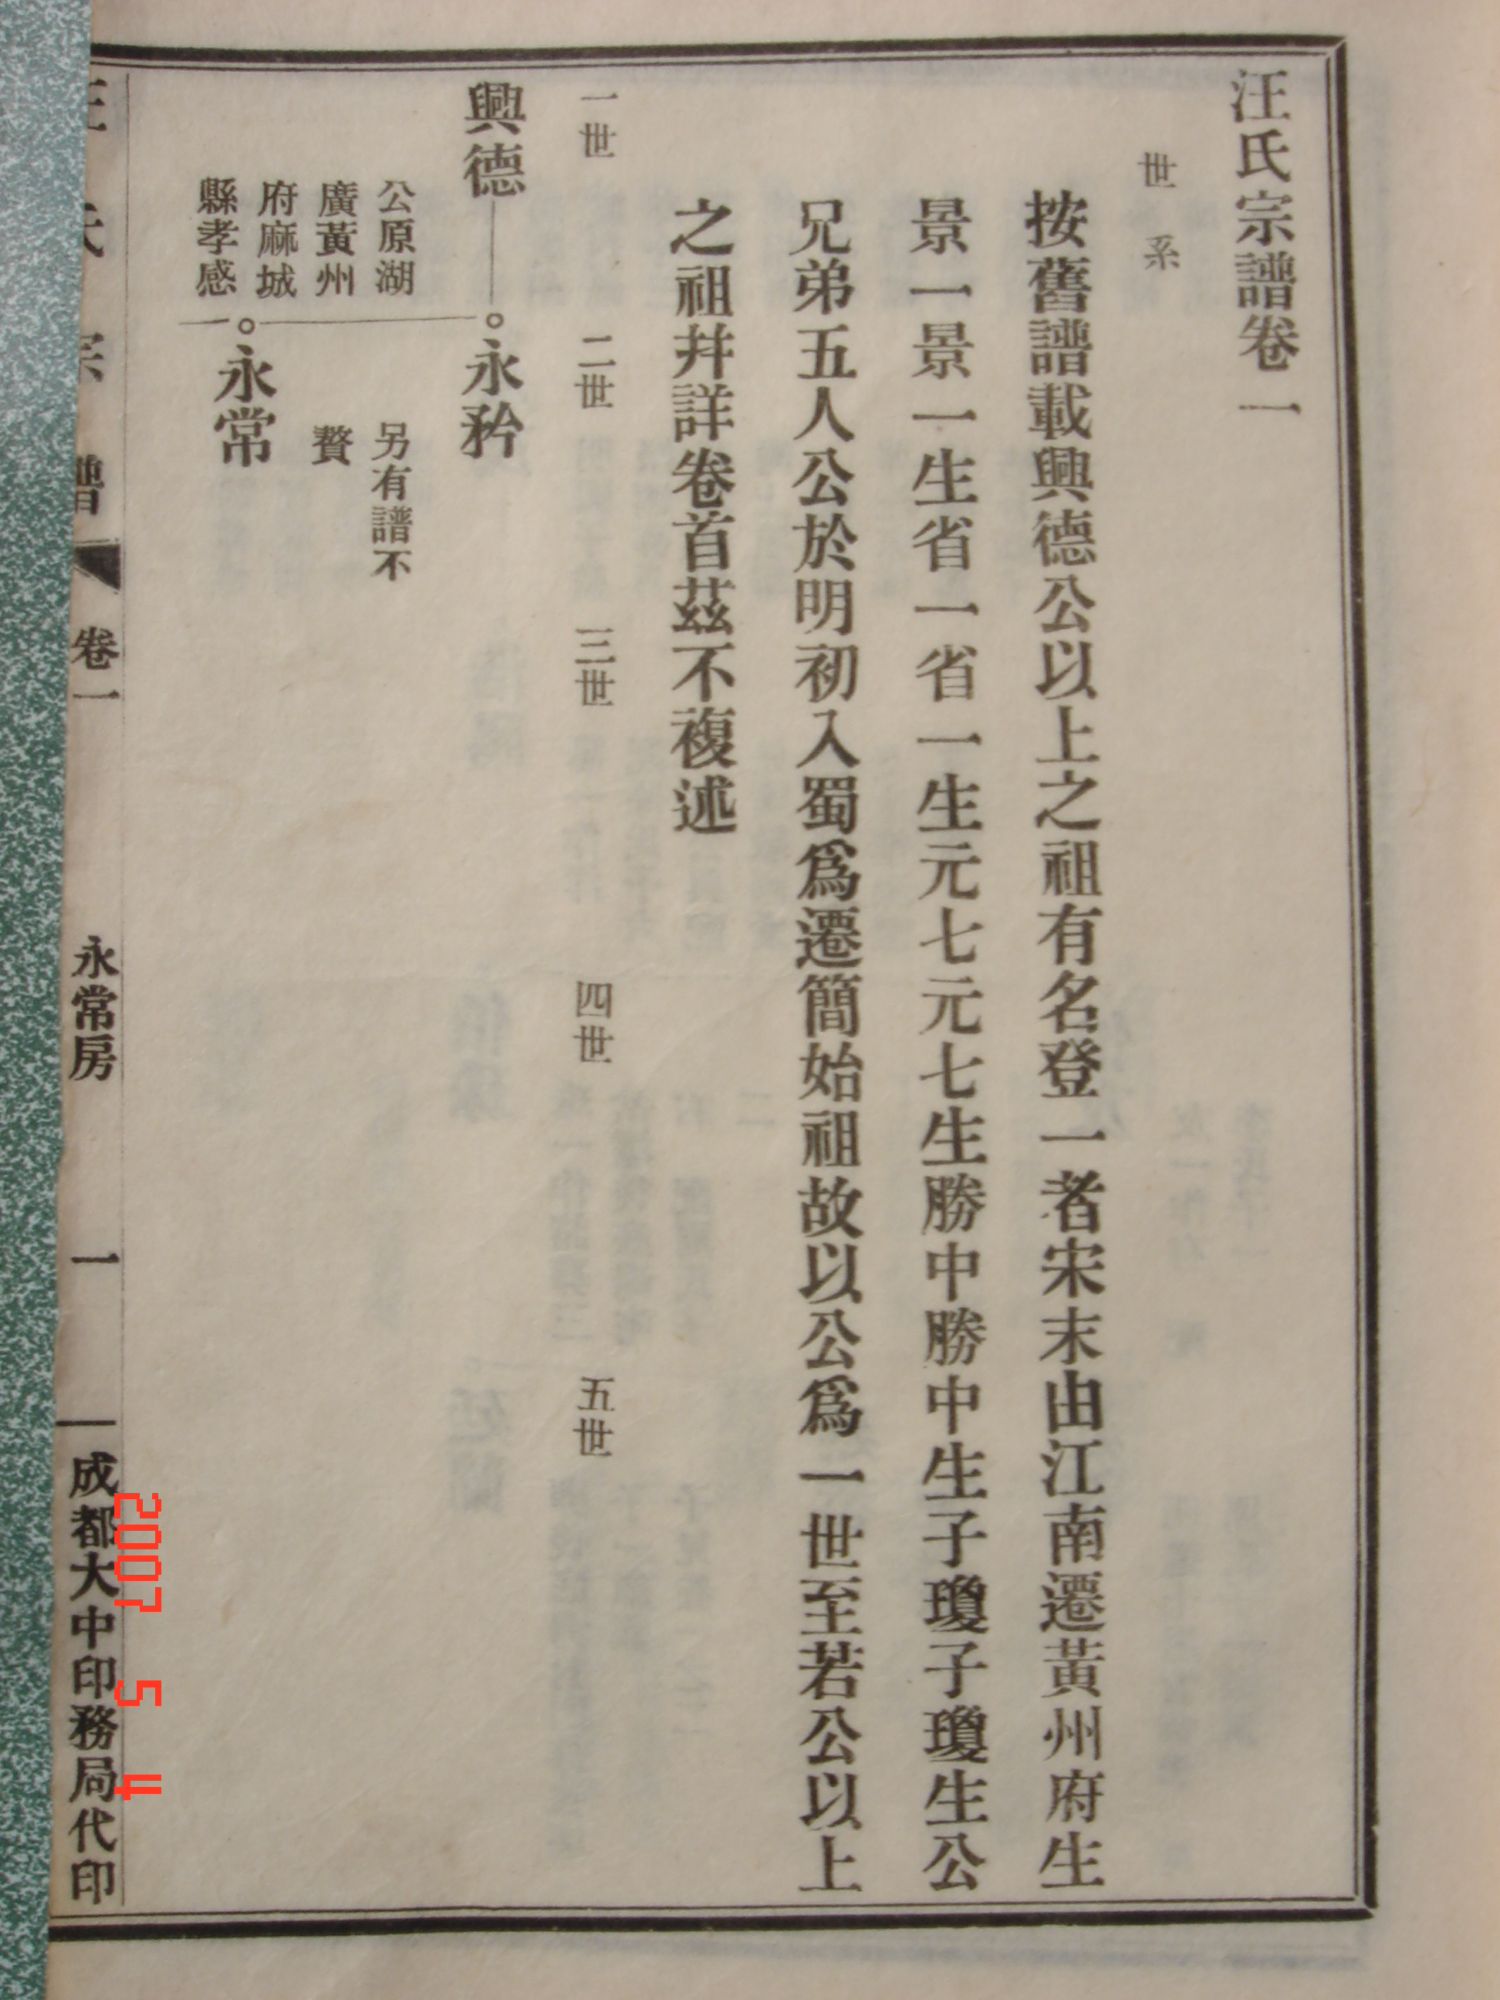 汪氏宗譜卷一
世系
按舊譜載興德公以上之祖有名登一者宋末由江南遷黃州府生
景一景一生省一省一生元七元七生勝中勝中生子瓊子瓊生公
兄弟五人公於明初入蜀爲遷簡始祖故以公爲一世至若公以上
之祖幷詳卷首茲不複述
一世
二世
三世
四世
五世
興德
永矜
公原湖
廣黃州
府麻城
縣孝感
另有譜不
贅
永常
汪氏宗譜
卷一
永常房
一
成都大中印務局代印
2007 5 4